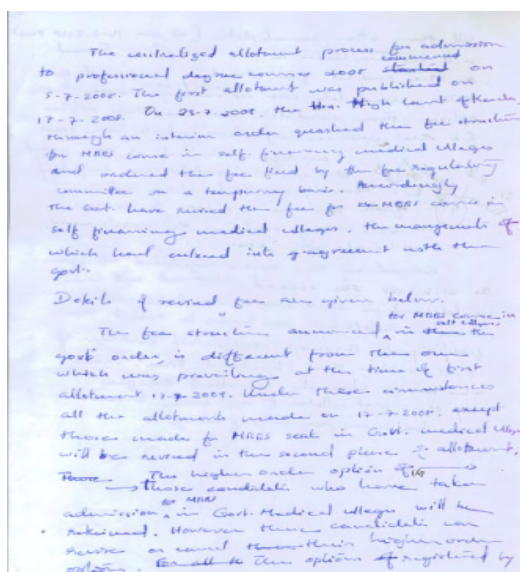 The centralized allotment process for admission
commenced
to professional degree courses 2008 started on
5-7-2008. The first allotment was published on
17-7-2008. On 29-7-2008, the High Court of Kerala
through an interim order quashed the fee structure
for MBBS course in self financing medical colleges
and ordered the fee fixed by the fee regulatory
committee on a temporary basis. Accordingly
the Govt. have revised the fee for MBBS course in
self financing medical colleges, the managements of
which had entered into agreement with the
govt.
Details of revised fee are given below.
for MBBS course in
self colleges
The fee structure announced, in the
govt order, is different from the one
which was prevailing at the time of first
allotment 17-7-2008. Under these circumstances
all the allotments made on 17-7-2008, except
those made for MBBS seats in Govt. medical colleges
will be revised in the second phase of allotment.
The higher order option of
those candidates who have taken
for MBBS
admission in Govt. Medical colleges will be
retained. However these candidates can
revise or cancel their higher order
options. The options registered by